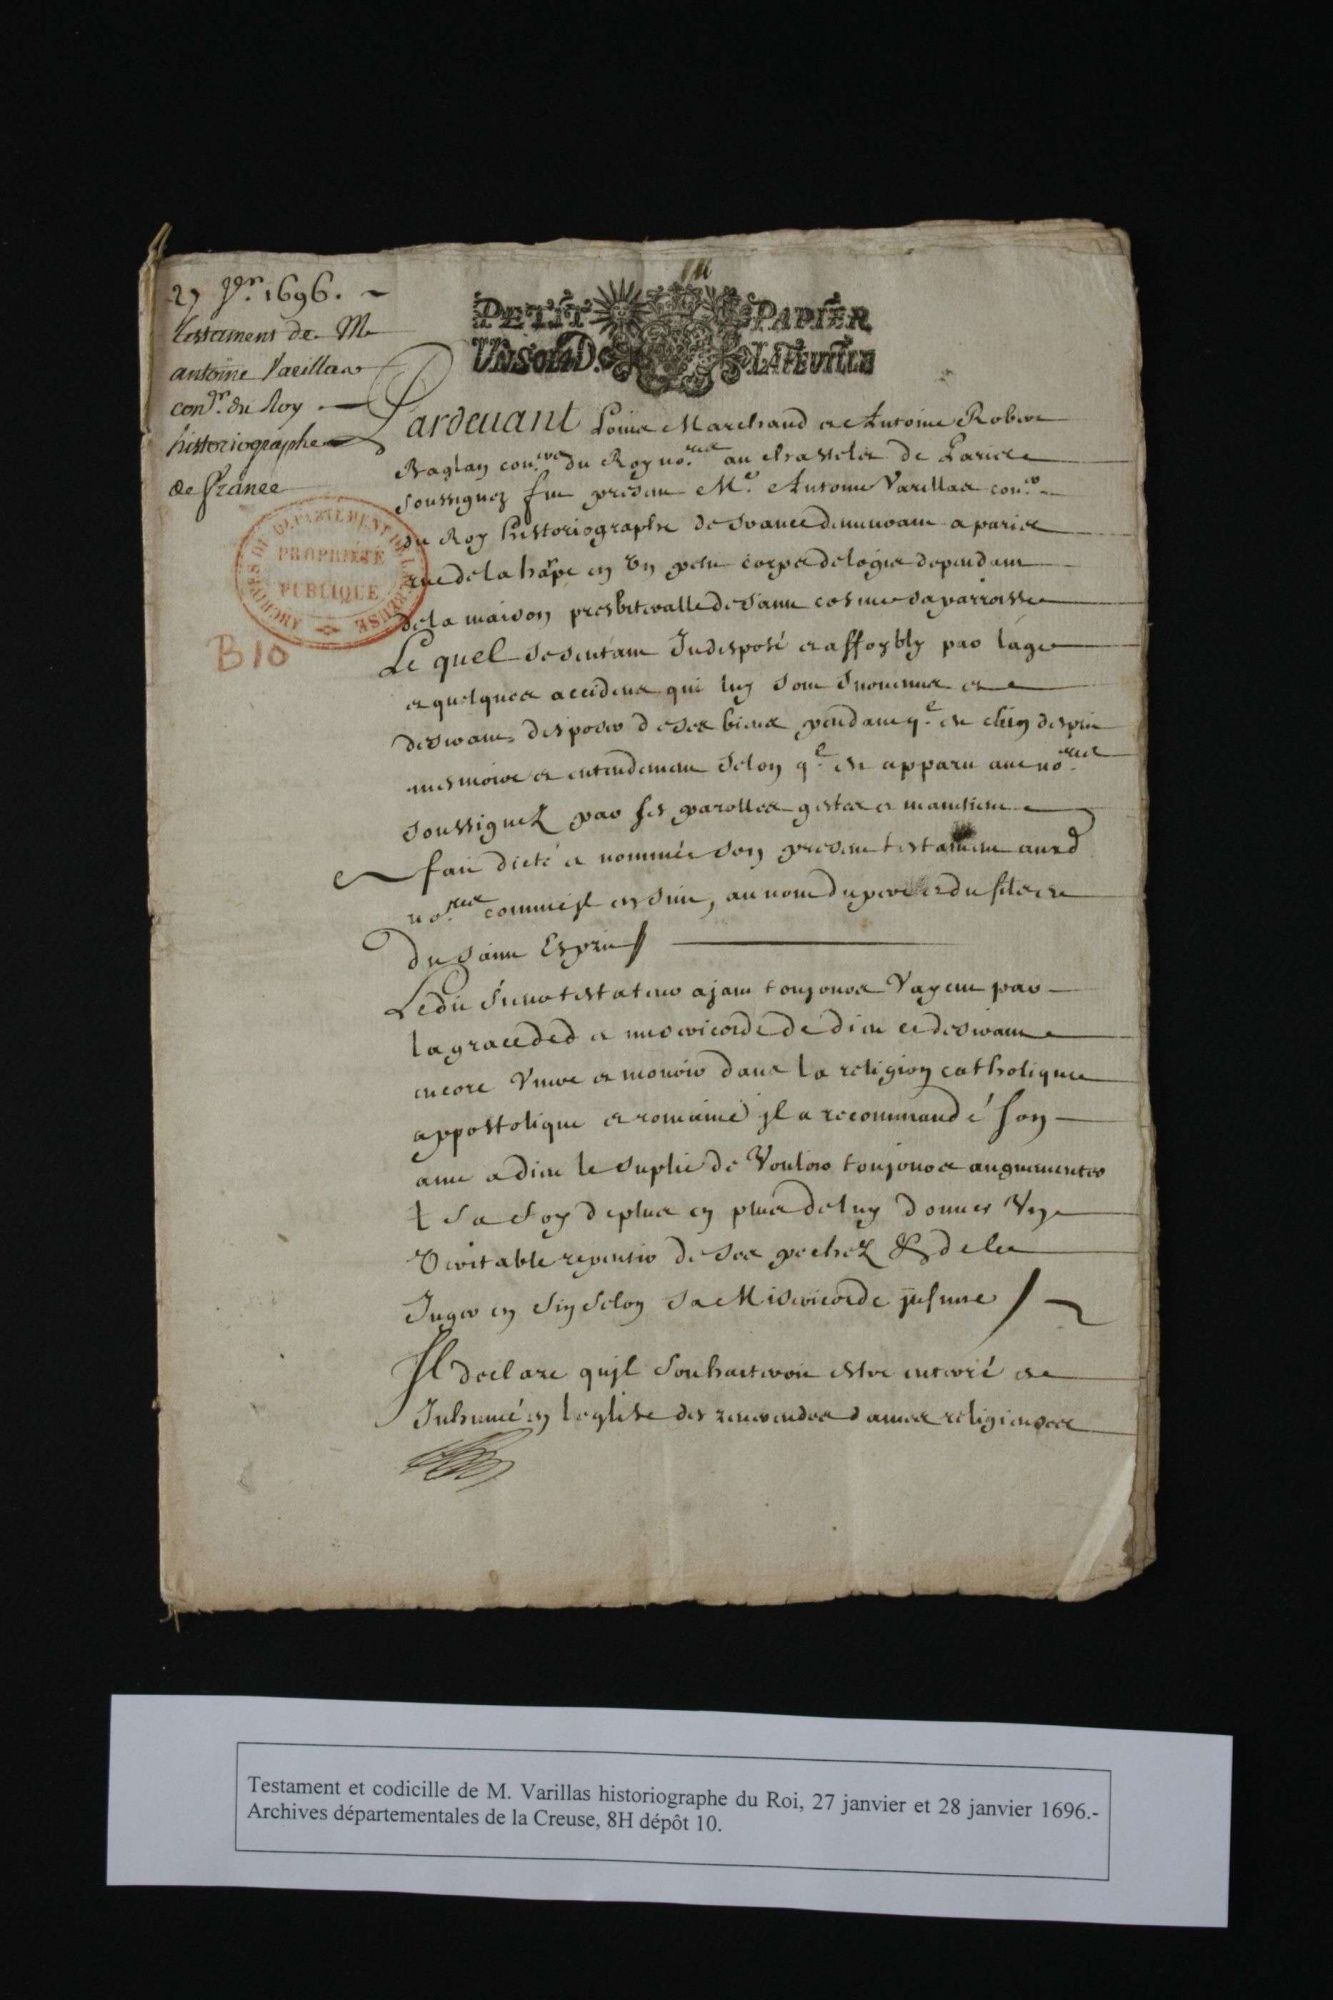 27 Jer. 1696.
testament de Mr
antoine Varillas
conser. du Roy
historiographe
de france
PETIT PAPIER
UN SOL 4D. LA FEUILLE
Pardeuant Louis Marchand et Antoine Robert
Baglan con.ers du Roy no.res au chastelet de Paris
soussignez fut present M.e Antoine Varillas con.er
du Roy historiographe de france demeurant a paris
rue de la harpe en un petit corps de logis dependant
de la maison presbiteralle de saint cosme sa parroisse
Lequel se sentant Indisposé et affoybly par l'age
et quelques accidens qui luy sont suruenus et
desirant disposer de ses biens pendant q.e est
mesmoire et entendement selon q.e est apparu aux no.res
soussignez par ses parolles gestes et maintient
fait dicté et nommé son present testament ausd
no.res comme jl ensuit, au nom du pere et du fils et
du saint Esprit
Ledit sieur testateur ajant toujours
la grace de et misericorde de dieu et desirant
encore viure et mourir dans la religion catholique
appostolique et romaine jl a recommandé son
ame a dieu le suplie de vouloir toujours augmenter
sa foy de plus en plus de luy donner vn
veritable repentir de ses pechez & de le
Juger en fin selon sa Misericorde jnfinie
Jl declare qujl souhaiteroit estre enterré et
Inhumé en leglise des reuerendes dames religieuses
ARCHIVES DU DEPARTEMENT DE LA CREUSE
PROPRIÉTÉ
PUBLIQUE
B10
Testament et codicille de M. Varillas historiographe du Roi, 27 janvier et 28 janvier 1696.-
Archives départementales de la Creuse, 8H dépôt 10.